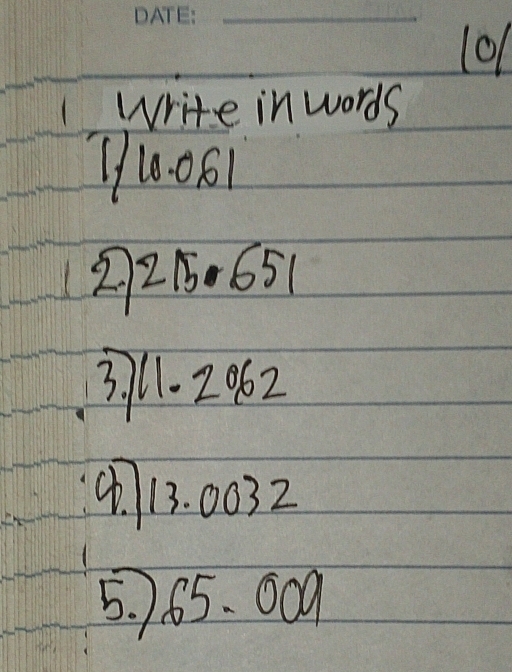 DATE:
10/
Write in words
1) 10.061
2.) 215.651
3.) 11.2062
4.) 13.0032
5.) 65.009